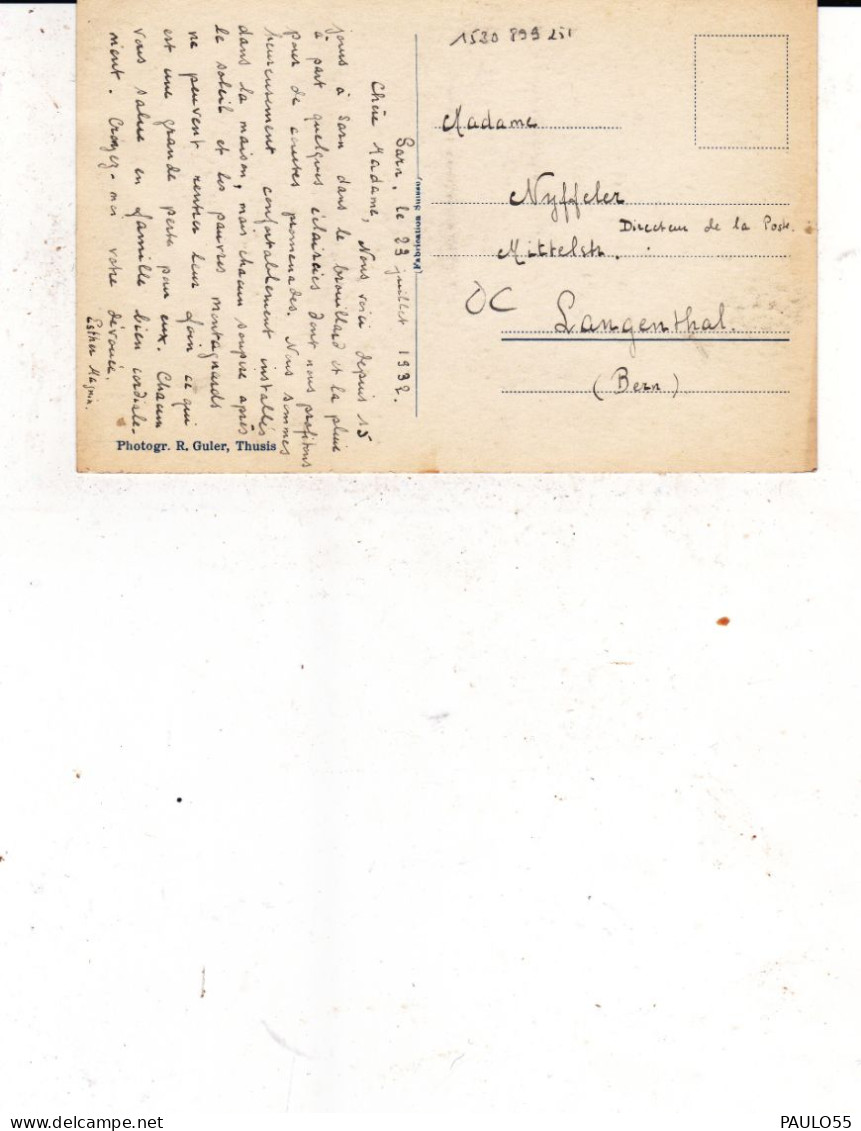 Sarn, le 23 juillet 1932.
Chère Madame, Nous voici depuis 15
jours à Sarn dans le brouillard et la pluie
à part quelques éclaircies dont nous profitons
pour de courtes promenades. Nous sommes
heureusement confortablement installés
dans la maison, mais chacun soupire après
le soleil et les pauvres montagnards
ne peuvent rentrer leur foin ce qui
est une grande perte pour eux. Chacun
vous salue en famille bien cordiale-
ment. Croyez-moi votre dévouée.
Esther Magnin.
Photogr. R. Guler, Thusis
(Fabrication suisse)
1530 899 251
Madame
Nyffeler
Directeur de la Poste.
Mittelstr.
OC
Langenthal.
(Bern)
PAULO55